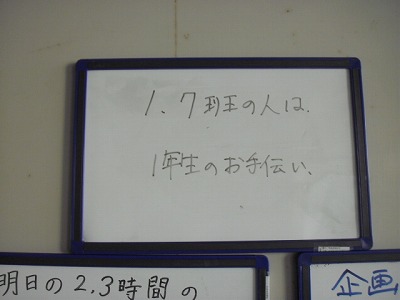 1、7班の人は、
1年生のお手伝い、
明日の2,3時間の
企画